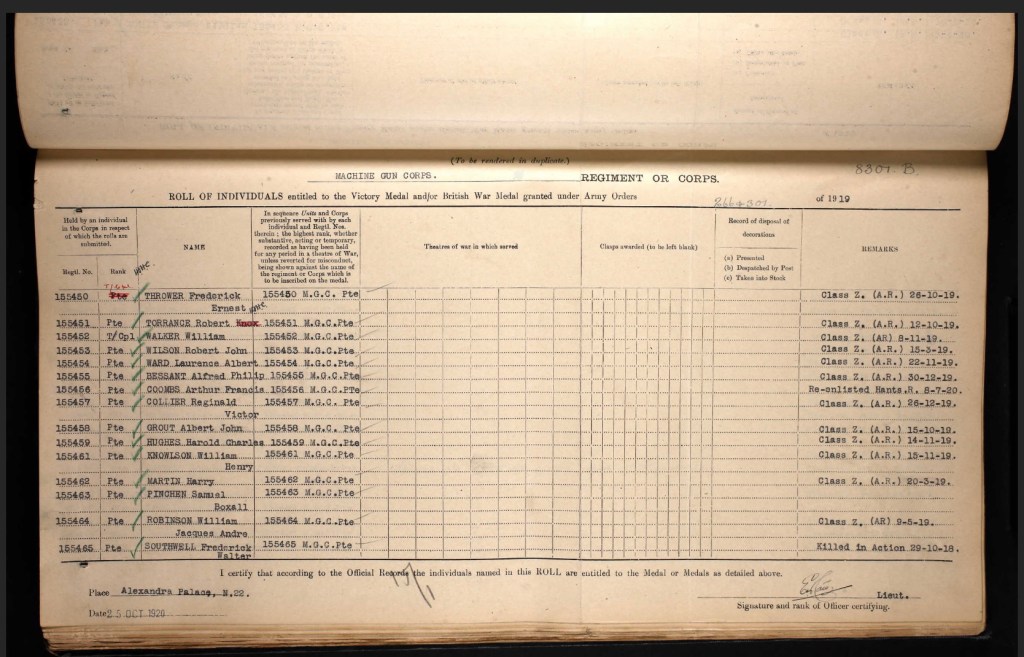 (To be rendered in duplicate.)
MACHINE GUN CORPS. REGIMENT OR CORPS. 8307 B.
ROLL OF INDIVIDUALS entitled to the Victory Medal and/or British War Medal granted under Army Orders of 1919
Held by an individual in the Corps in respect of which the rolls are submitted.
Regtl. No. Rank
NAME
In sequence Units and Corps previously served with by each individual and Regtl. Nos. therein; the highest rank, whether substantive, acting or temporary, recorded as having been held for any period in a theatre of War, unless reverted for misconduct, being shown against the name of the regiment or Corps which is to be inscribed on the medal.
Theatres of war in which served
Clasps awarded (to be left blank)
Record of disposal of decorations
(a) Presented
(b) Despatched by Post
(c) Taken into Stock
REMARKS
155450 Pte THROWER Frederick 155450 M.G.C. Pte Class Z. (A.R.) 26-10-19.
Ernest
155451 Pte TORRANCE Robert Knox 155451 M.G.C.Pte Class Z. (A.R.) 12-10-19.
155452 T/Cpl WALKER William 155452 M.G.C.Pte Class Z. (AR) 8-11-19.
155453 Pte WILSON Robert John 155453 M.G.C.Pte Class Z. (A.R.) 15-3-19.
155454 Pte WARD Laurence Albert 155454 M.G.C.Pte Class Z. (A.R.) 22-11-19.
155455 Pte BESSANT Alfred Philip 155455 M.G.C.Pte Class Z. (A.R.) 30-12-19.
155456 Pte COOMBS Arthur Francis 155456 M.G.C.PTe Re-enlisted Hants.R. 8-7-20.
155457 Pte COLLIER Reginald 155457 M.G.C. Pte Class Z. (A.R.) 26-12-19.
Victor
155458 Pte GROUT Albert John 155458 M.G.C. Pte Class Z. (A.R.) 15-10-19.
155459 Pte HUGHES Harold Charles 155459 M.G.C.Pte Class Z. (A.R.) 14-11-19.
155461 Pte KNOWLSON William 155461 M.G.C.Pte Class Z. (A.R.) 15-11-19.
Henry
155462 Pte MARTIN Harry 155462 M.G.C.Pte Class Z. (A.R.) 20-3-19.
155463 Pte PINCHEN Samuel 155463 M.G.C.Pte
Boxall
155464 Pte ROBINSON William 155464 M.G.C.Pte Class Z. (AR) 9-5-19.
Jacques Andre
155465 Pte SOUTHWELL Frederick 155465 M.G.C.Pte Killed in Action 29-10-18.
Walter
I certify that according to the Official Records the individuals named in this ROLL are entitled to the Medal or Medals as detailed above.
Place Alexandra Palace, N.22. Lieut.
Signature and rank of Officer certifying.
Date 25 OCT 1920